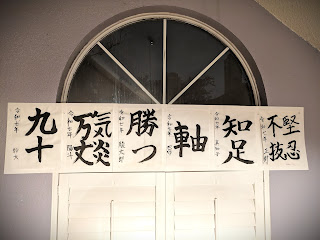 堅忍
不抜
知足
令和七年
軸
令和七年
勝つ
令和七年
気炎
万丈
令和七年
九十
令和七年